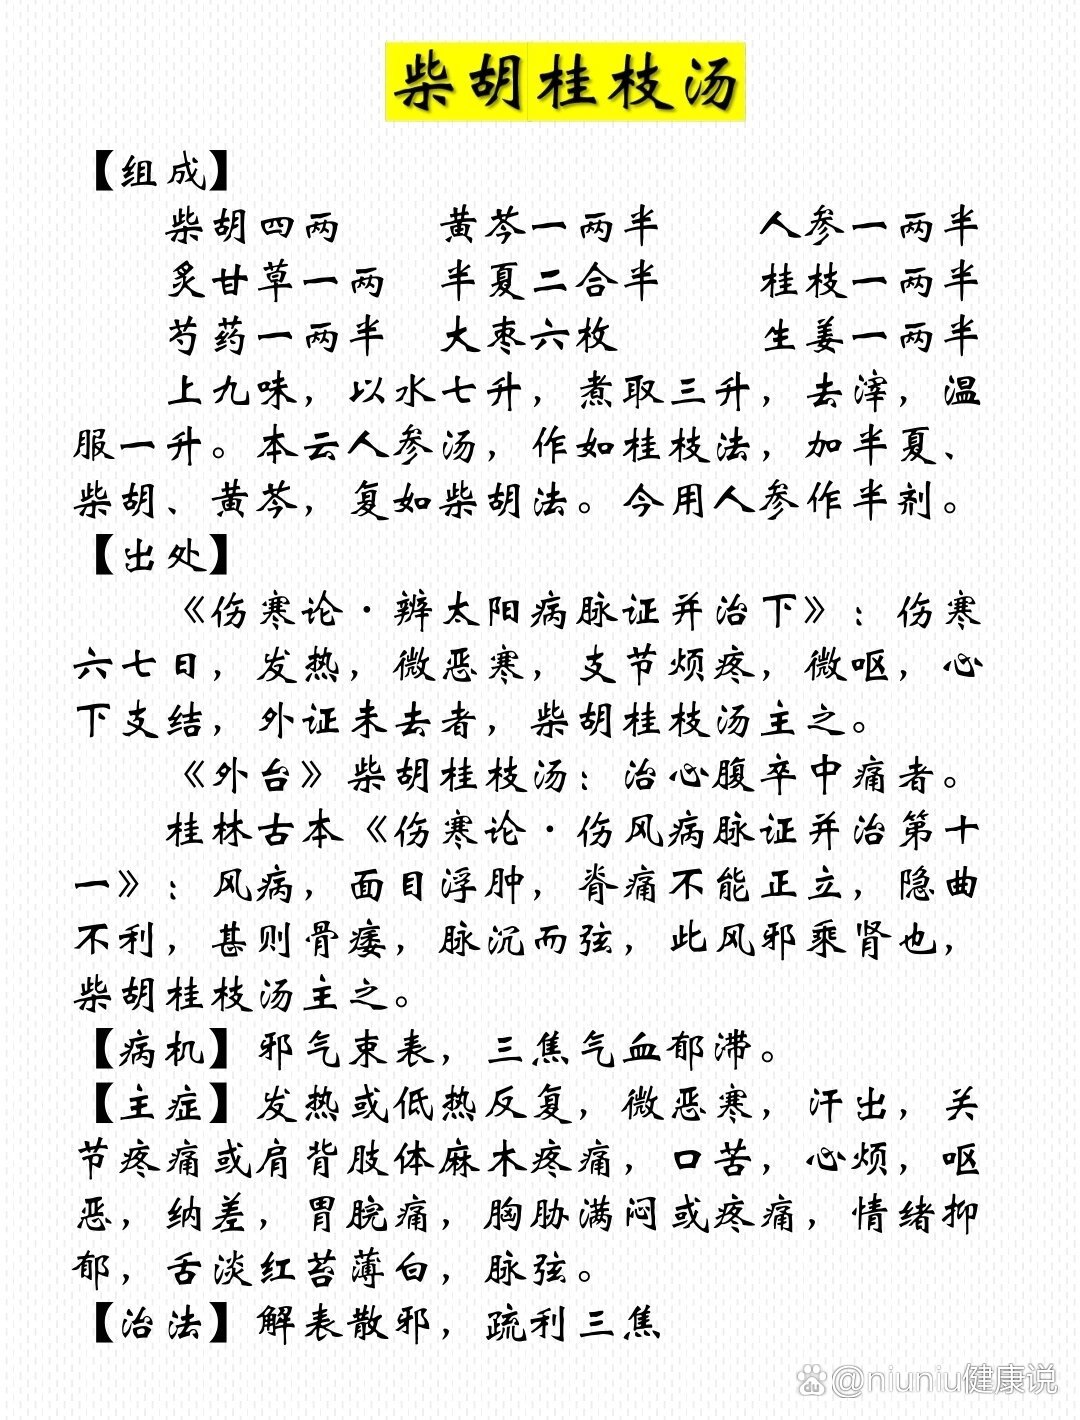 柴胡桂枝汤
【组成】
柴胡四两 黄芩一两半 人参一两半
炙甘草一两 半夏二合半 桂枝一两半
芍药一两半 大枣六枚 生姜一两半
上九味，以水七升，煮取三升，去滓，温
服一升。本云人参汤，作如桂枝法，加半夏、
柴胡、黄芩，复如柴胡法。今用人参作半剂。
【出处】
《伤寒论·辨太阳病脉证并治下》：伤寒
六七日，发热，微恶寒，支节烦疼，微呕，心
下支结，外证未去者，柴胡桂枝汤主之。
《外台》柴胡桂枝汤：治心腹卒中痛者。
桂林古本《伤寒论·伤风病脉证并治第十
一》：风病，面目浮肿，脊痛不能正立，隐曲
不利，甚则骨痿，脉沉而弦，此风邪乘肾也，
柴胡桂枝汤主之。
【病机】邪气束表，三焦气血郁滞。
【主症】发热或低热反复，微恶寒，汗出，关
节疼痛或肩背肢体麻木疼痛，口苦，心烦，呕
恶，纳差，胃脘痛，胸胁满闷或疼痛，情绪抑
郁，舌淡红苔薄白，脉弦。
【治法】解表散邪，疏利三焦
du @niuniu健康说